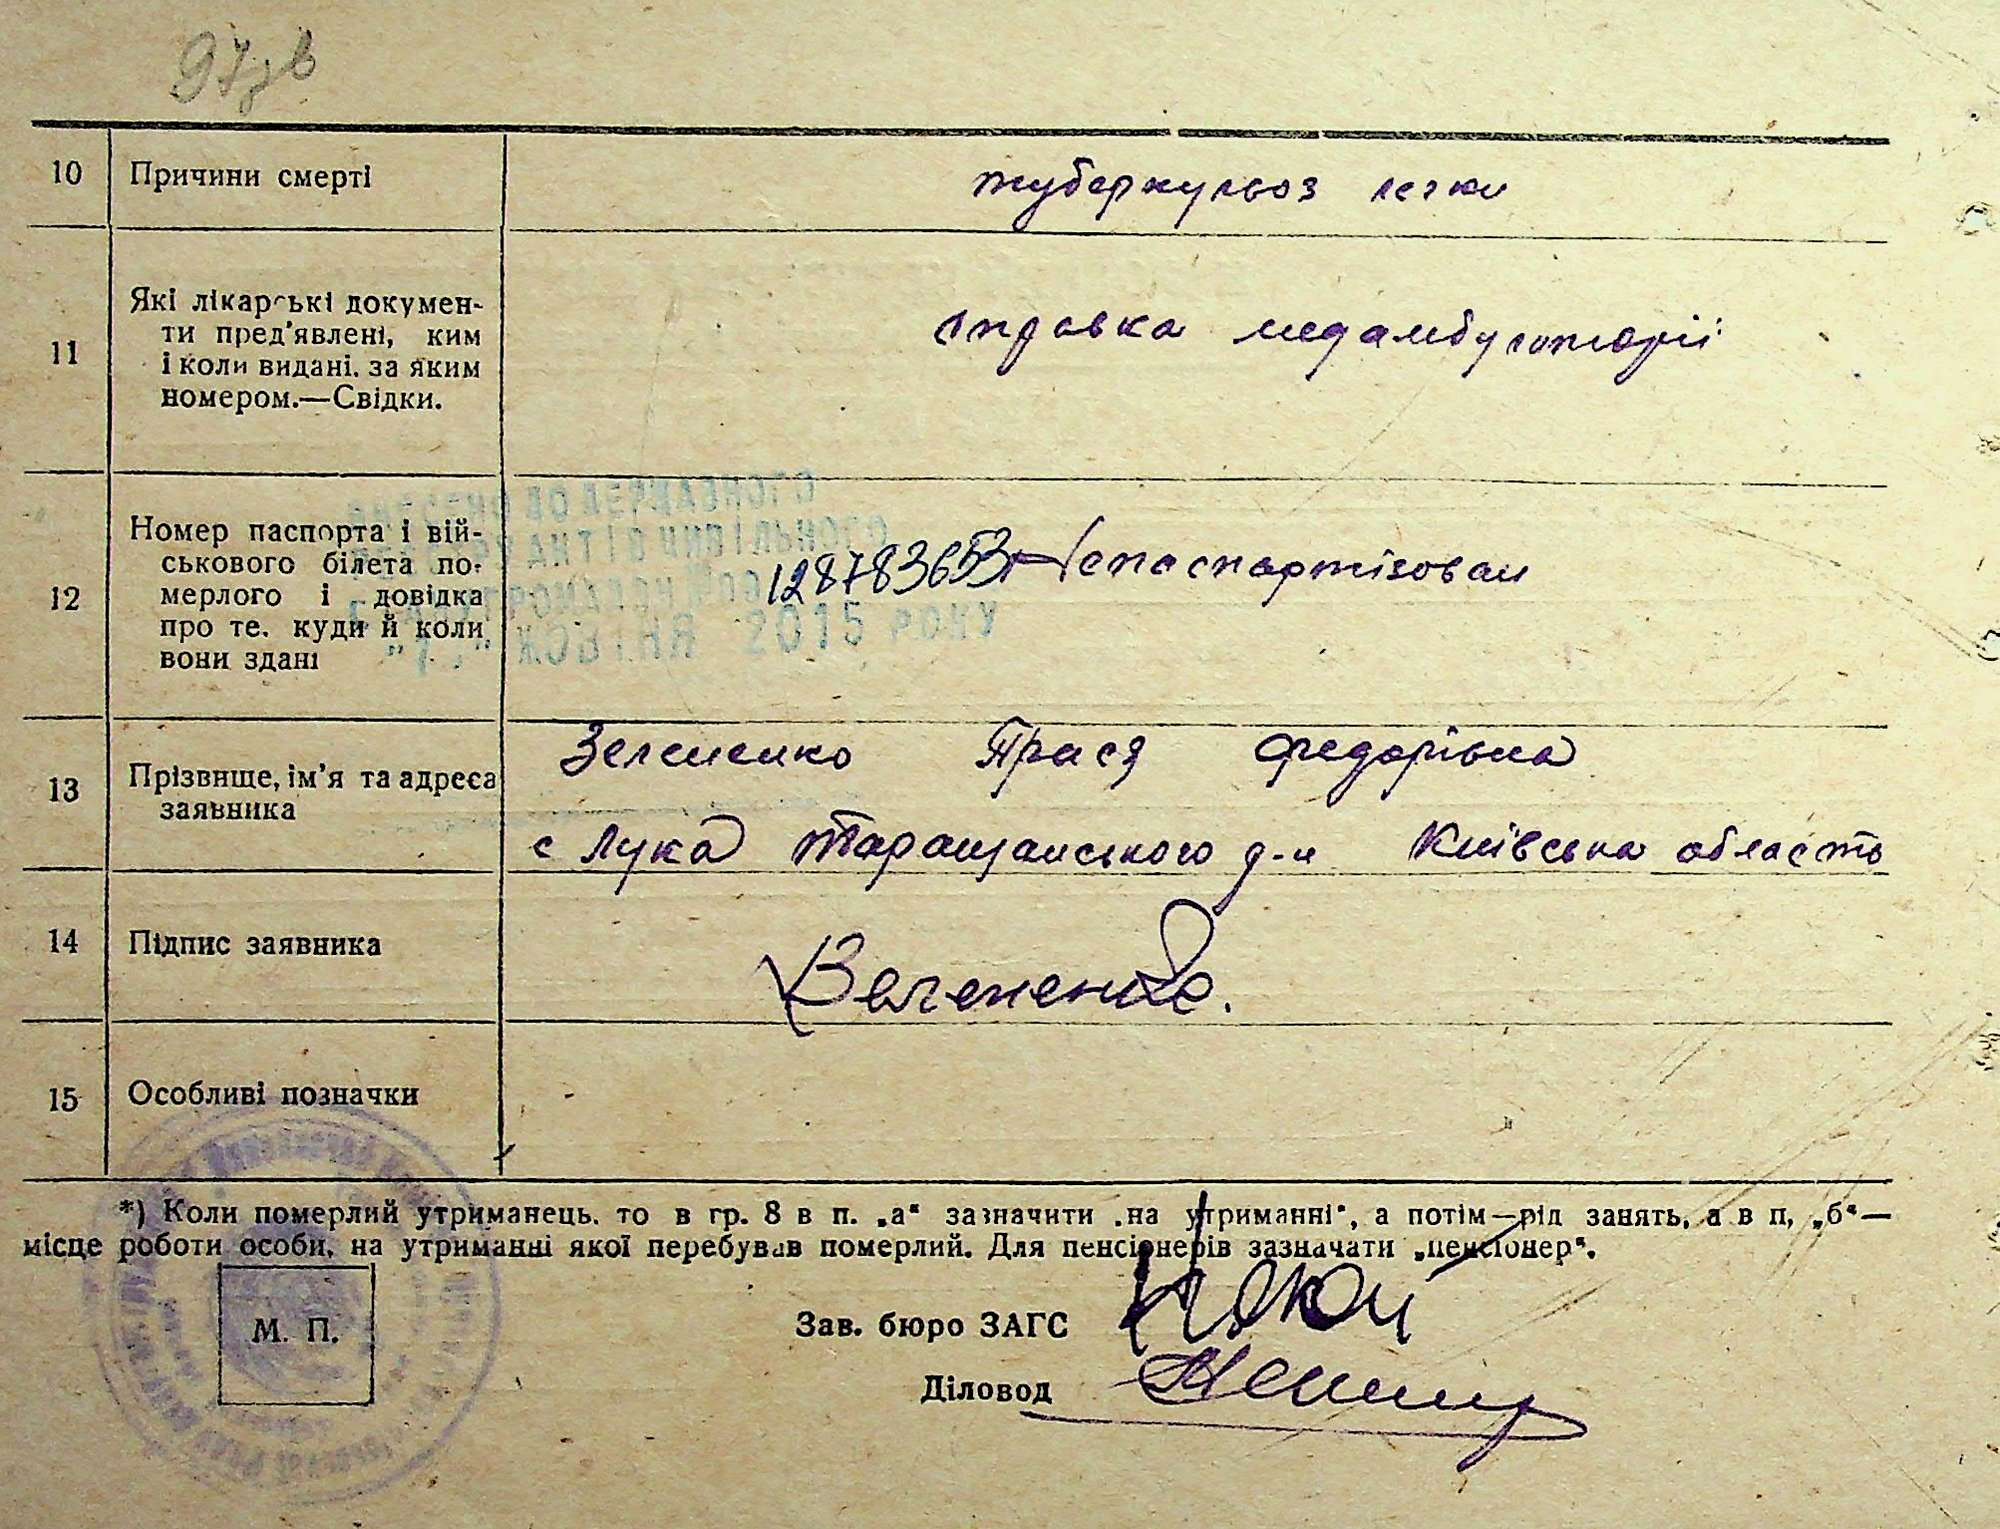 97зв
10 Причини смерті туберкульоз легки
11 Які лікарські докумен-
ти пред'явлені, ким
і коли видані. за яким
номером.—Свідки.
справка медамбулаторії
ВНЕСЕНО ДО ДЕРЖАВНОГО
АКТІВ ЦИВІЛЬНОГО
ГРОМАДЯН
ЖОВТНЯ 2015 РОКУ
12 Номер паспорта і вій-
ськового білета по-
мерлого і довідка
про те. куди й коли
вони здані
12878365З Непаспортізован
13 Прізвище, ім'я та адреса
заявника
Зелененко Прася Федорівна
с Лука Таращанського р-н Київська область
14 Підпис заявника Зелененко.
15 Особливі позначки
*) Коли померлий утриманець. то в гр. 8 в п. „а“ зазначити „на утриманні“, а потім—рід занять, а в п, „б“—
місце роботи особи, на утриманні якої перебував померлий. Для пенсіонерів зазначати „пенсіонер“.
М. П.
Зав. бюро ЗАГС
Діловод